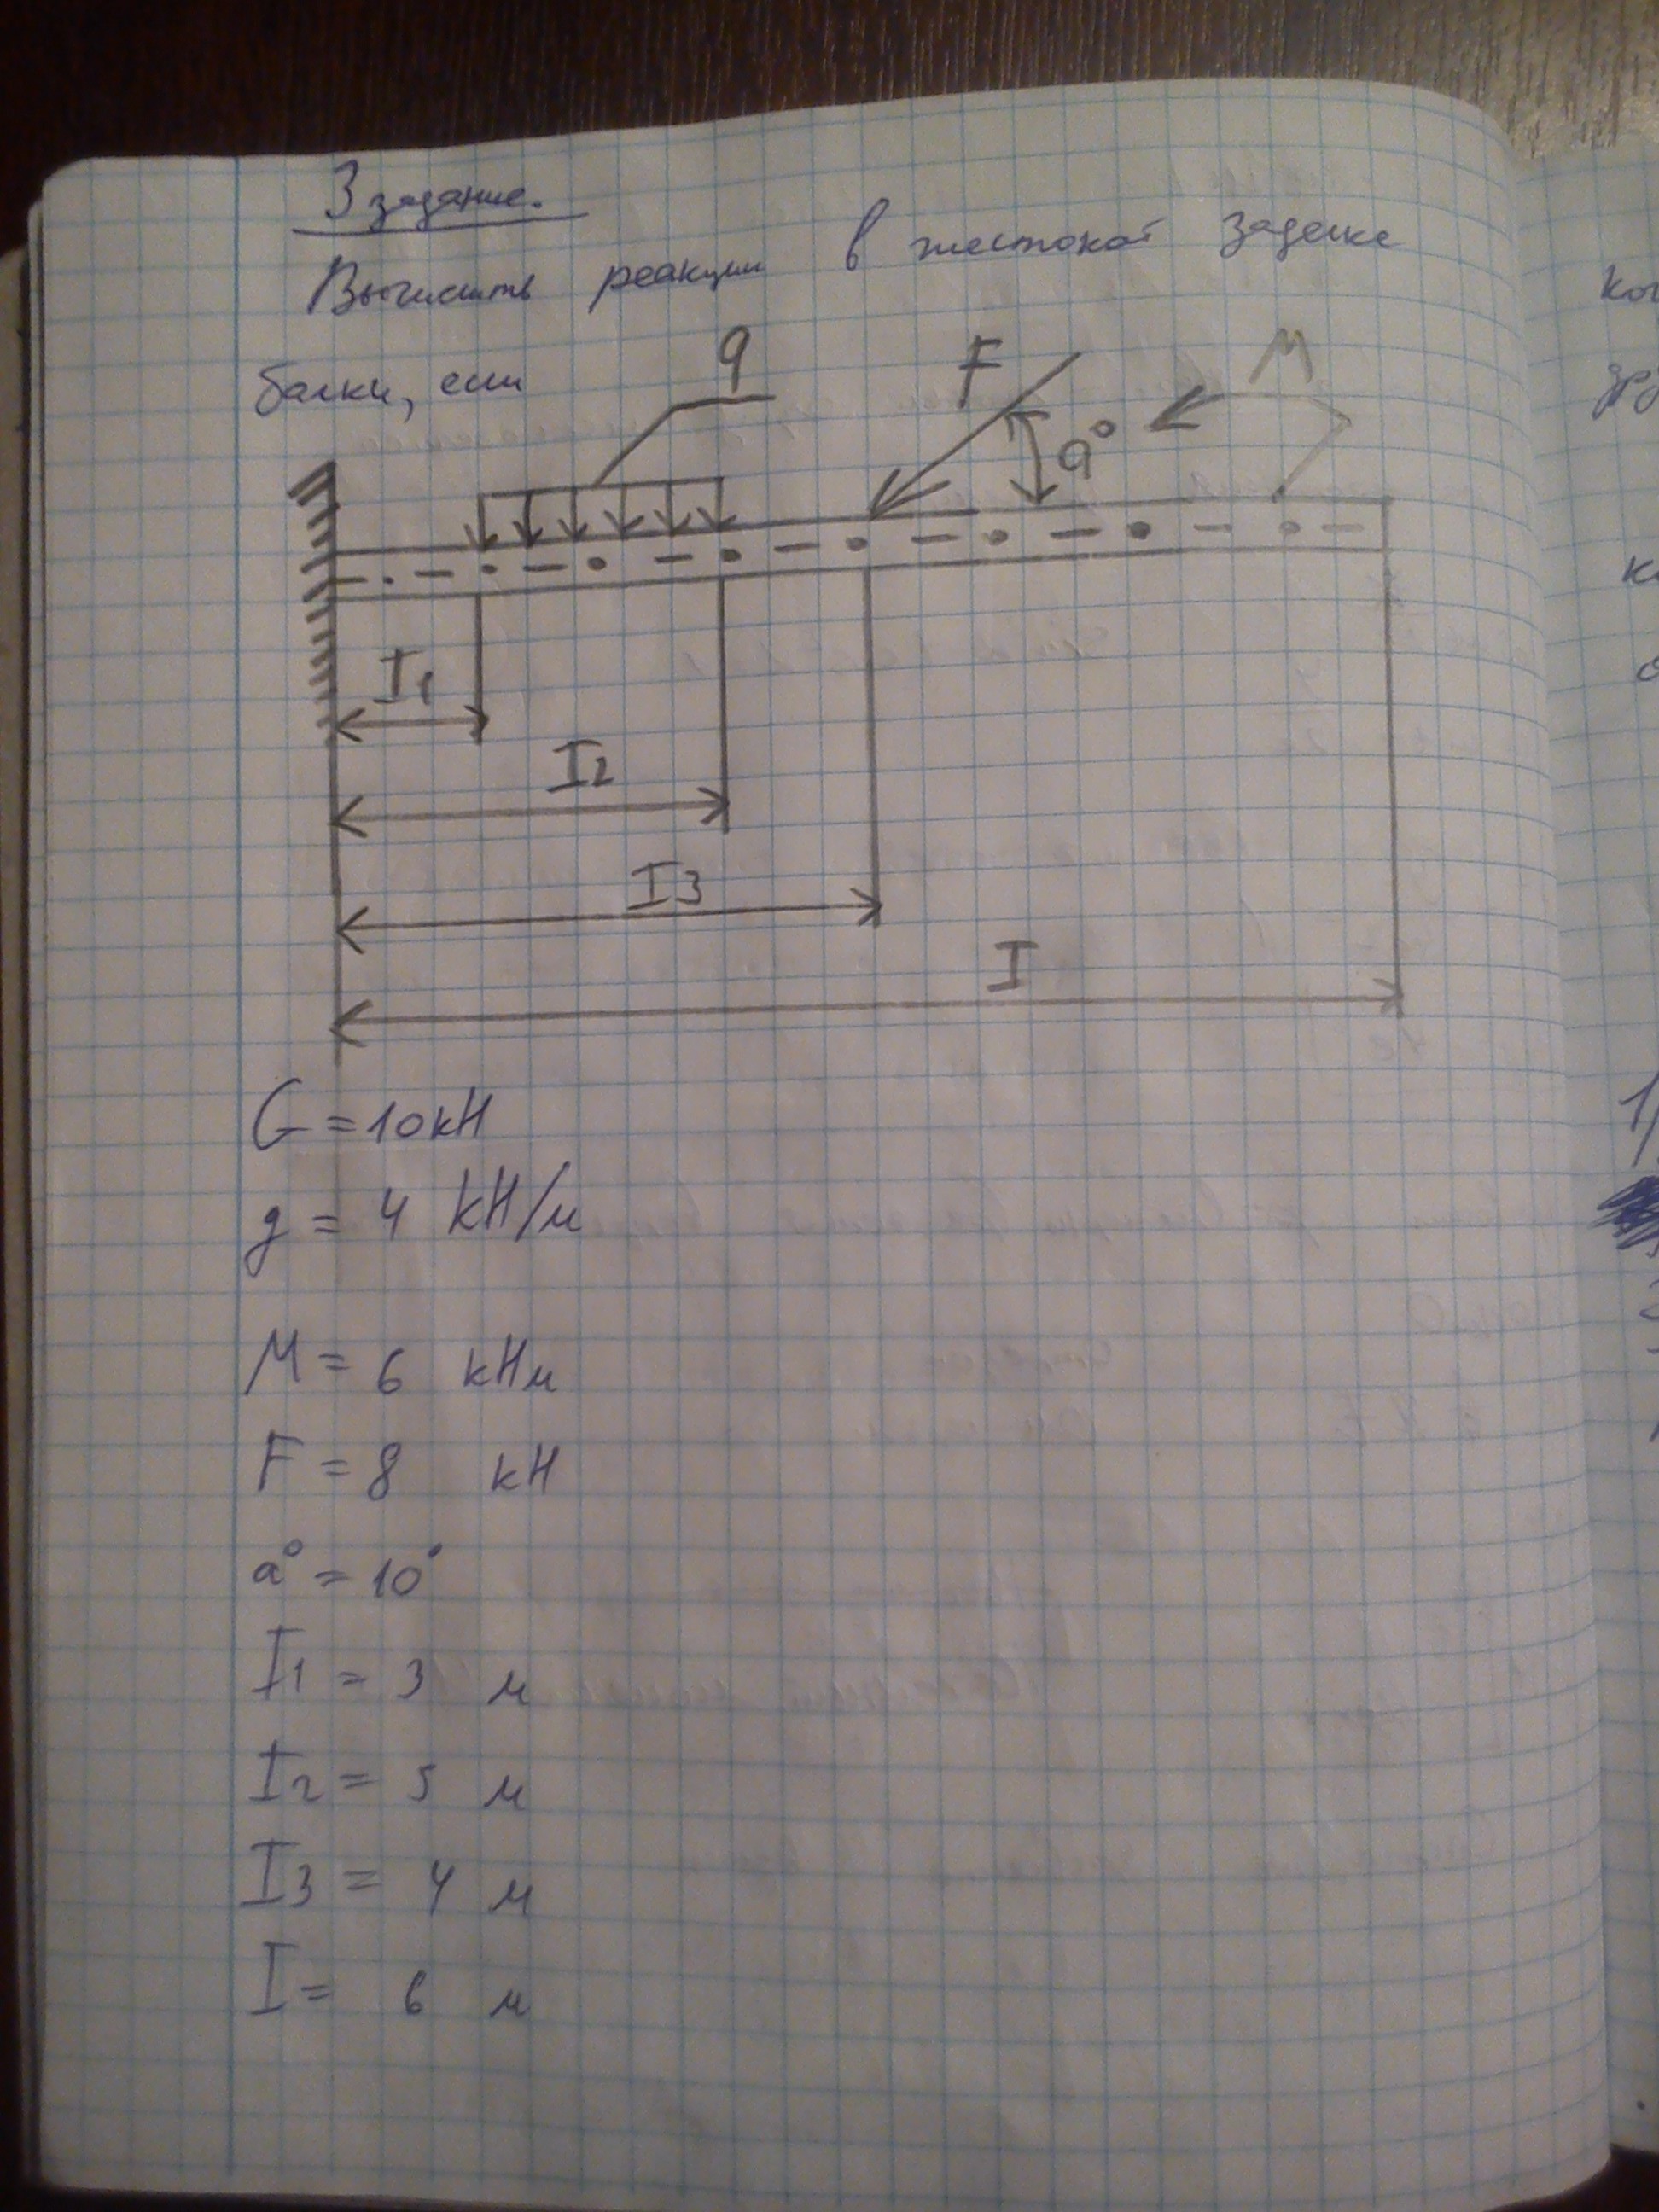 3 задание.
Вычислить реакции в жестокой заделке
балки, если
q
F
M
a°
I1
I2
I3
I
G = 10 кН
g = 4 кН/м
M = 6 кНм
F = 8 кН
a° = 10°
I1 = 3 м
I2 = 5 м
I3 = 4 м
I = 6 м